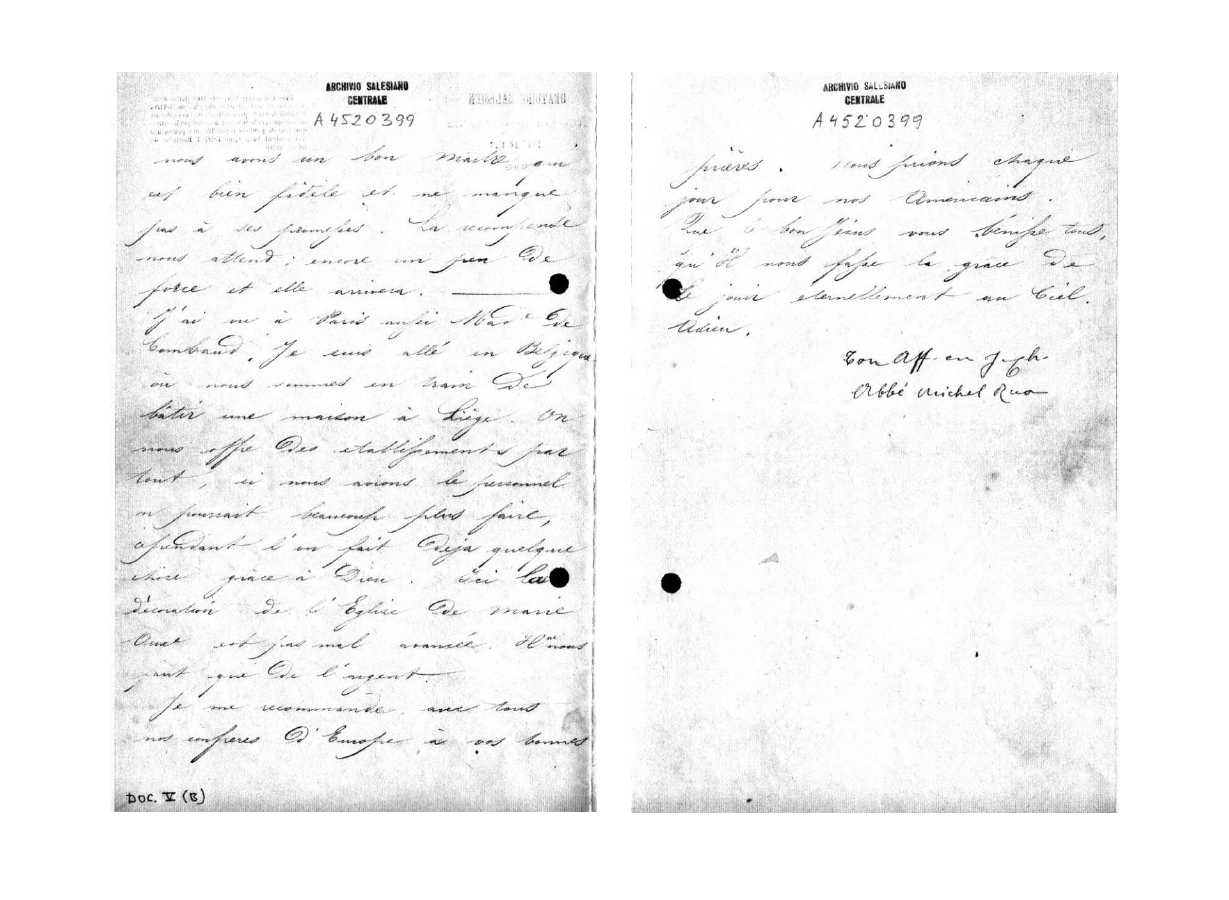 ARCHIVIO SALESIANO
CENTRALE
A 4520399
nous avons un bon maître qui
est bien fidèle et ne manque
pas à ses promesses. La recompense
nous attend; encore un peu de
force et elle arrivera.
J'ai vu à Paris aussi Mad.e de
Combaud. Je suis allé en Belgique
où nous sommes en train de
bâtir une maison à Liège. On
nous offre des etablissements par
tout, si nous avions le personnel
on pourrait beaucoup plus faire,
cependant l'on fait deja quelque
chose grace à Dieu. Ici la
décoration de l'Eglise de Marie
Auxe est pas mal avancée. Il nous
faut que de l'argent.
Je me recommande avec tous
nos confreres d'Europe à vos bonnes
DOC. V (B)
ARCHIVIO SALESIANO
CENTRALE
A 4520399
prières. Nous prions chaque
jour pour nos Americains.
Que le bon Jésus vous bénisse tous,
qu'Il nous fasse la grace de
le jouir eternellement au Ciel.
Adieu.
Ton Aff. en J. Ch.
Abbé Michel Rua